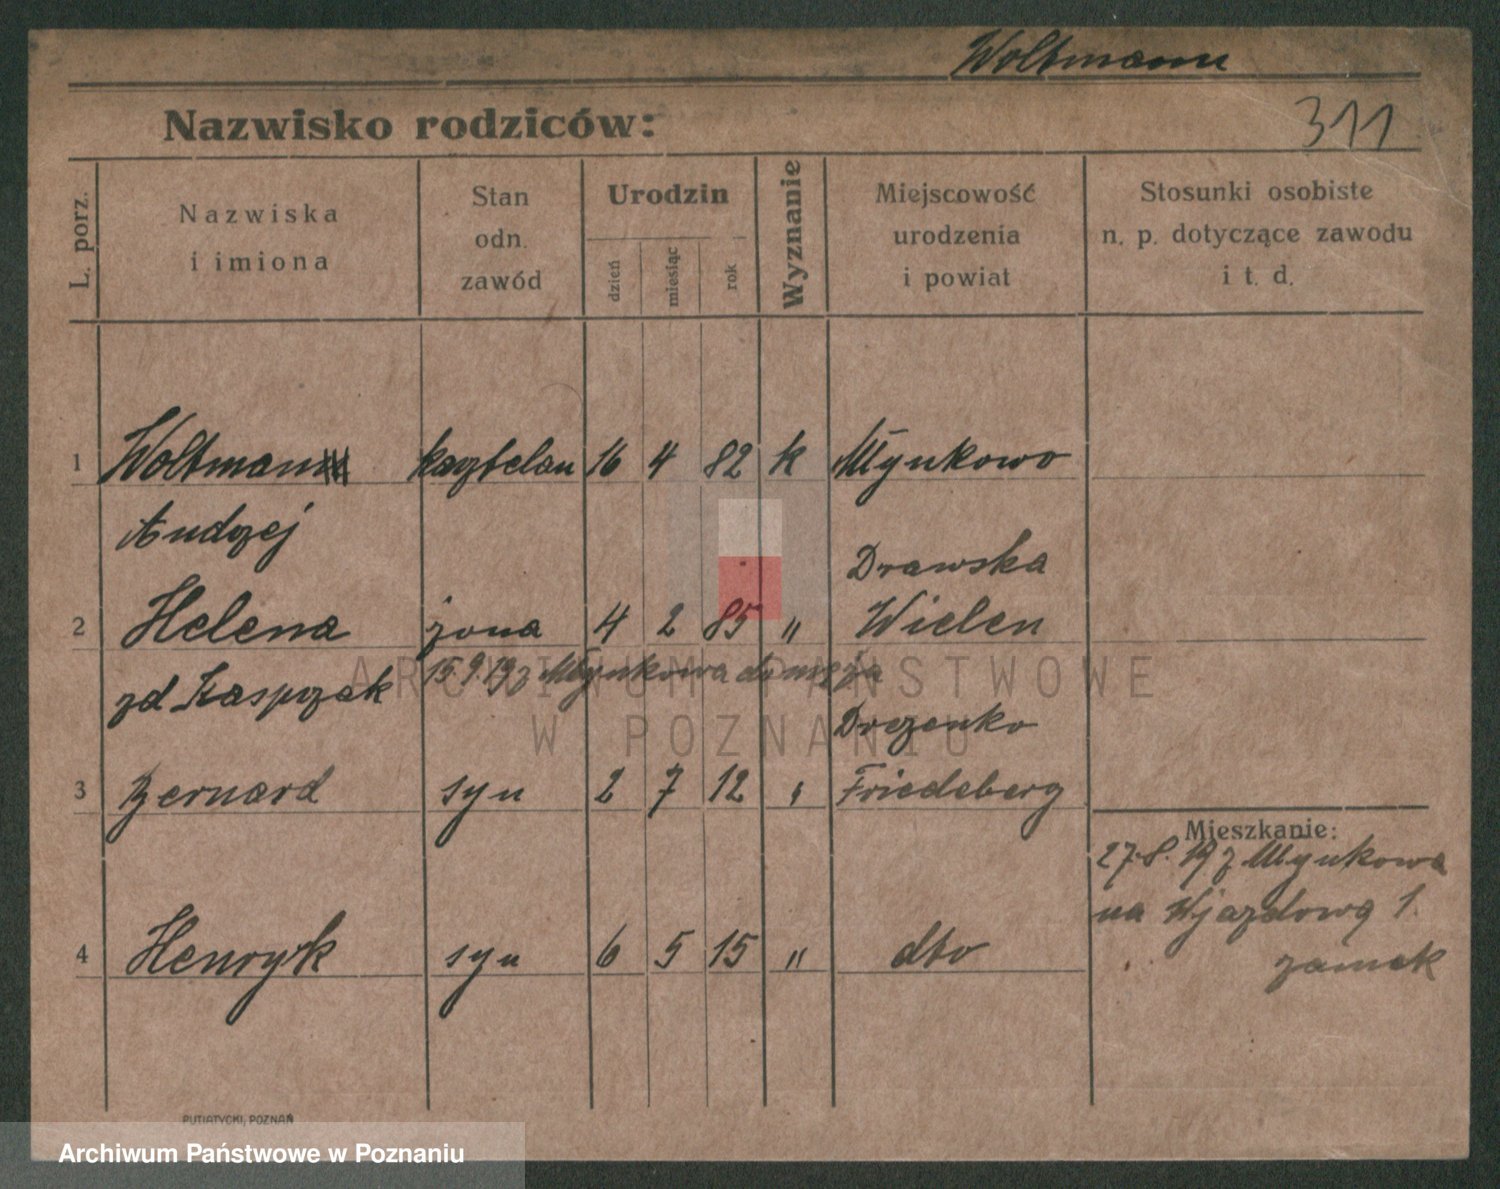 Woltmann
Nazwisko rodziców:
311
L. porz.
Nazwiska
i imiona
Stan
odn.
zawód
Urodzin
dzień
miesiąc
rok
Wyznanie
Miejscowość
urodzenia
i powiat
Stosunki osobiste
n. p. dotyczące zawodu
i t. d.
1 Woltman kasztelan 16 4 82 k Młynkowo
Andrzej
Drawska
2 Helena żona 4 2 85 " Wielen
zd Kasprzak 15.9.19 z Młynkowa do męża
Drezenko
3 Bernard syn 2 7 12 " Friedeberg
Mieszkanie:
27.8.19 z Młynkowa
na Wjazdową 1.
zamek
4 Henryk syn 6 5 15 " dto
PUTIATYCKI, POZNAŃ
ARCHIWUM PAŃSTWOWE
W POZNANIU
Archiwum Państwowe w Poznaniu